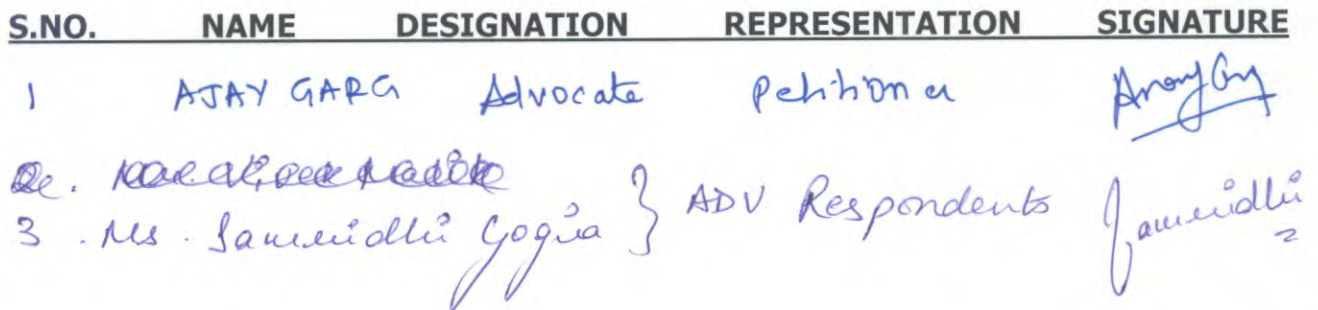 S.NO. NAME DESIGNATION REPRESENTATION SIGNATURE
1 AJAY GARG Advocate Petitioner
2.
3. Ms. Samridhi Gogia } ADV Respondents Samridhi